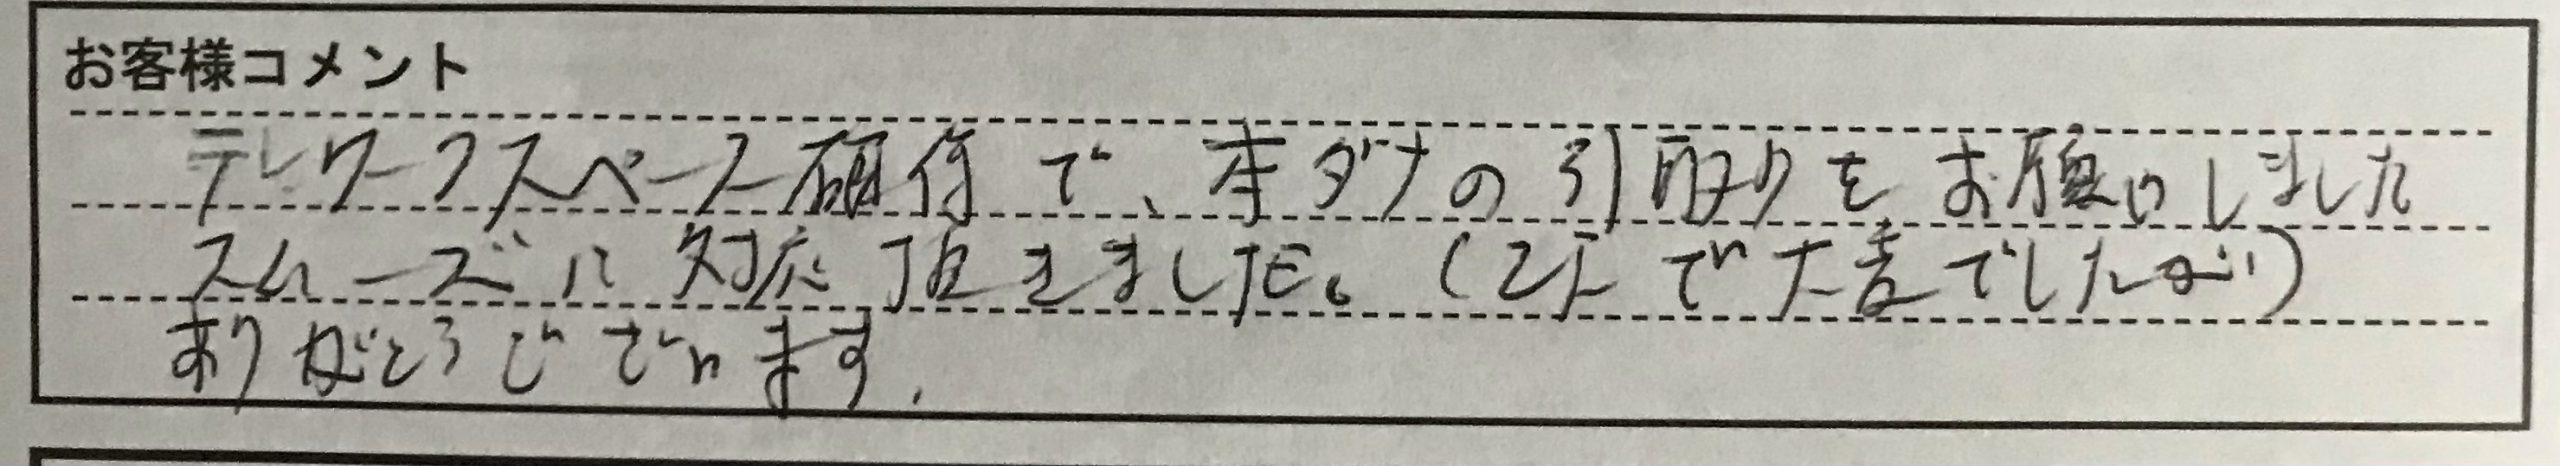 お客様コメント
テレワークスペース確保で、本ダナの引取りをお願いしました
スムーズに対応頂きました。(2Fで大変でしたが)
ありがとうございます.